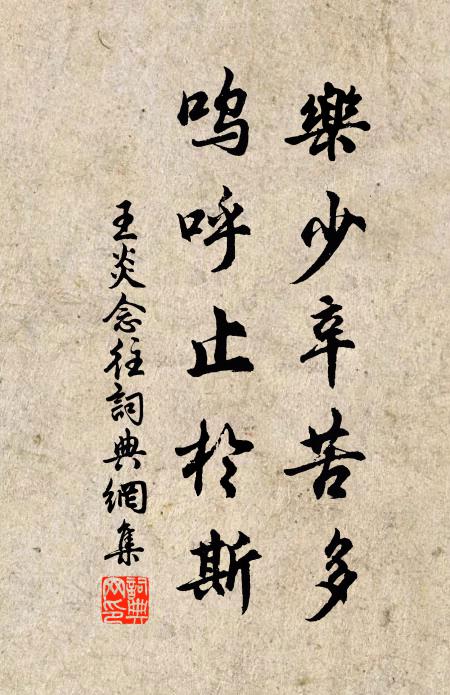 樂少辛苦多
嗚呼止於斯
王炎念往詞典網集
詞典
網印